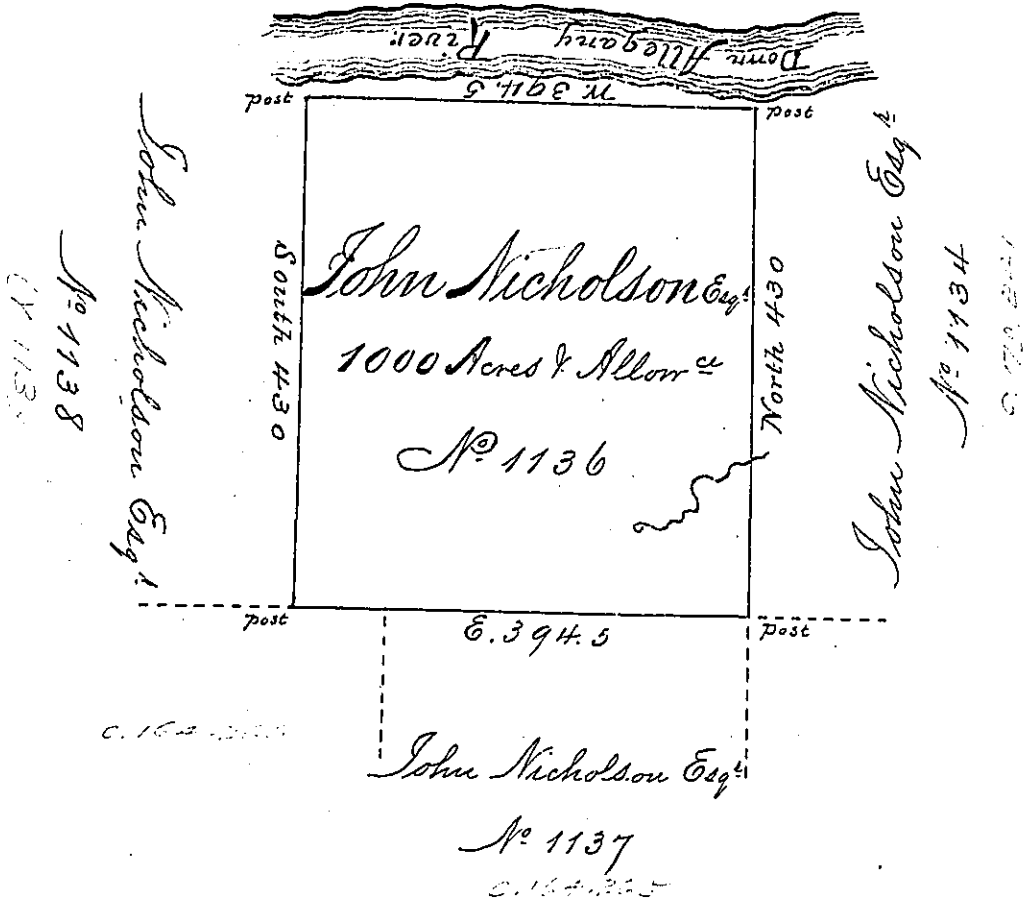 Down Allegany River
W. 394.5
post
post
John Nicholson Esqr
No 1138
South 430
John Nicholson Esqr
1000 Acres & Allowce
No 1136
North 430
John Nicholson Esqr
No 1134
post
E. 394.5
post
John Nicholson Esqr
No 1137